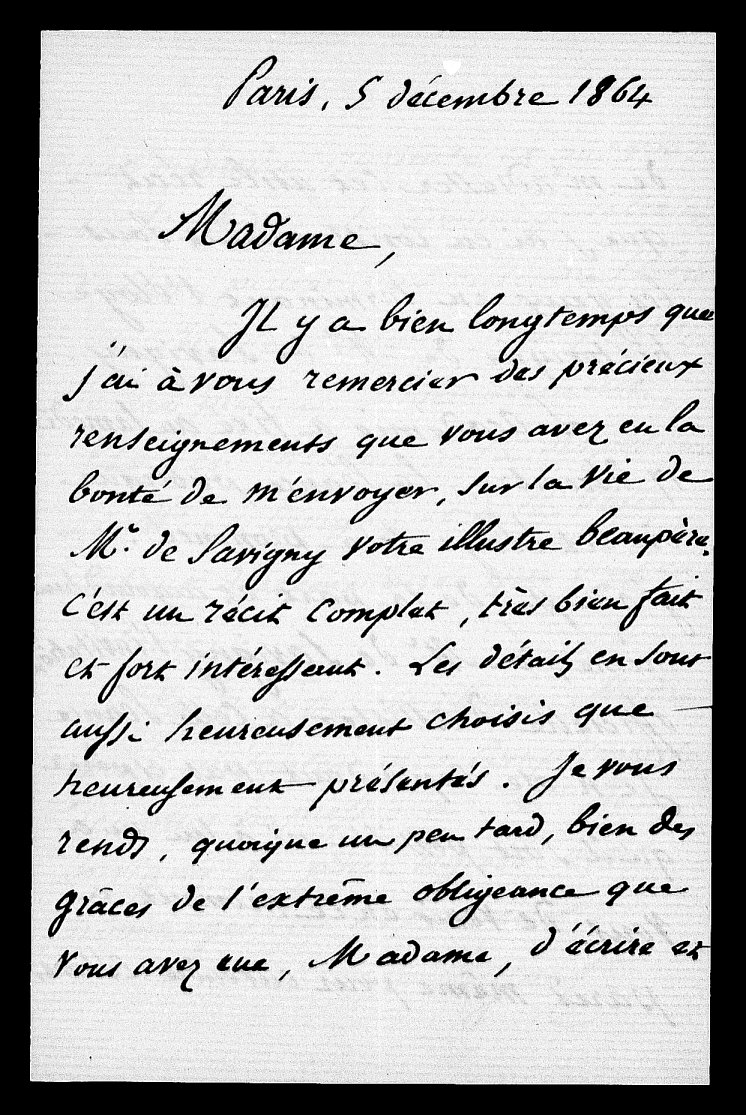 Paris, 5 décembre 1864
Madame,
Il y a bien longtemps que
j'ai à vous remercier des précieux
renseignements que vous avez eu la
bonté de m'envoyer, sur la vie de
Mr. de Savigny votre illustre beaupère.
c'est un récit complet, très bien fait
et fort intéressant. Les détails en sont
aussi heureusement choisis que
heureusement présentés. Je vous
rends, quoique un peu tard, bien des
grâces de l'extrême obligeance que
vous avez eue, Madame, d'écrire et